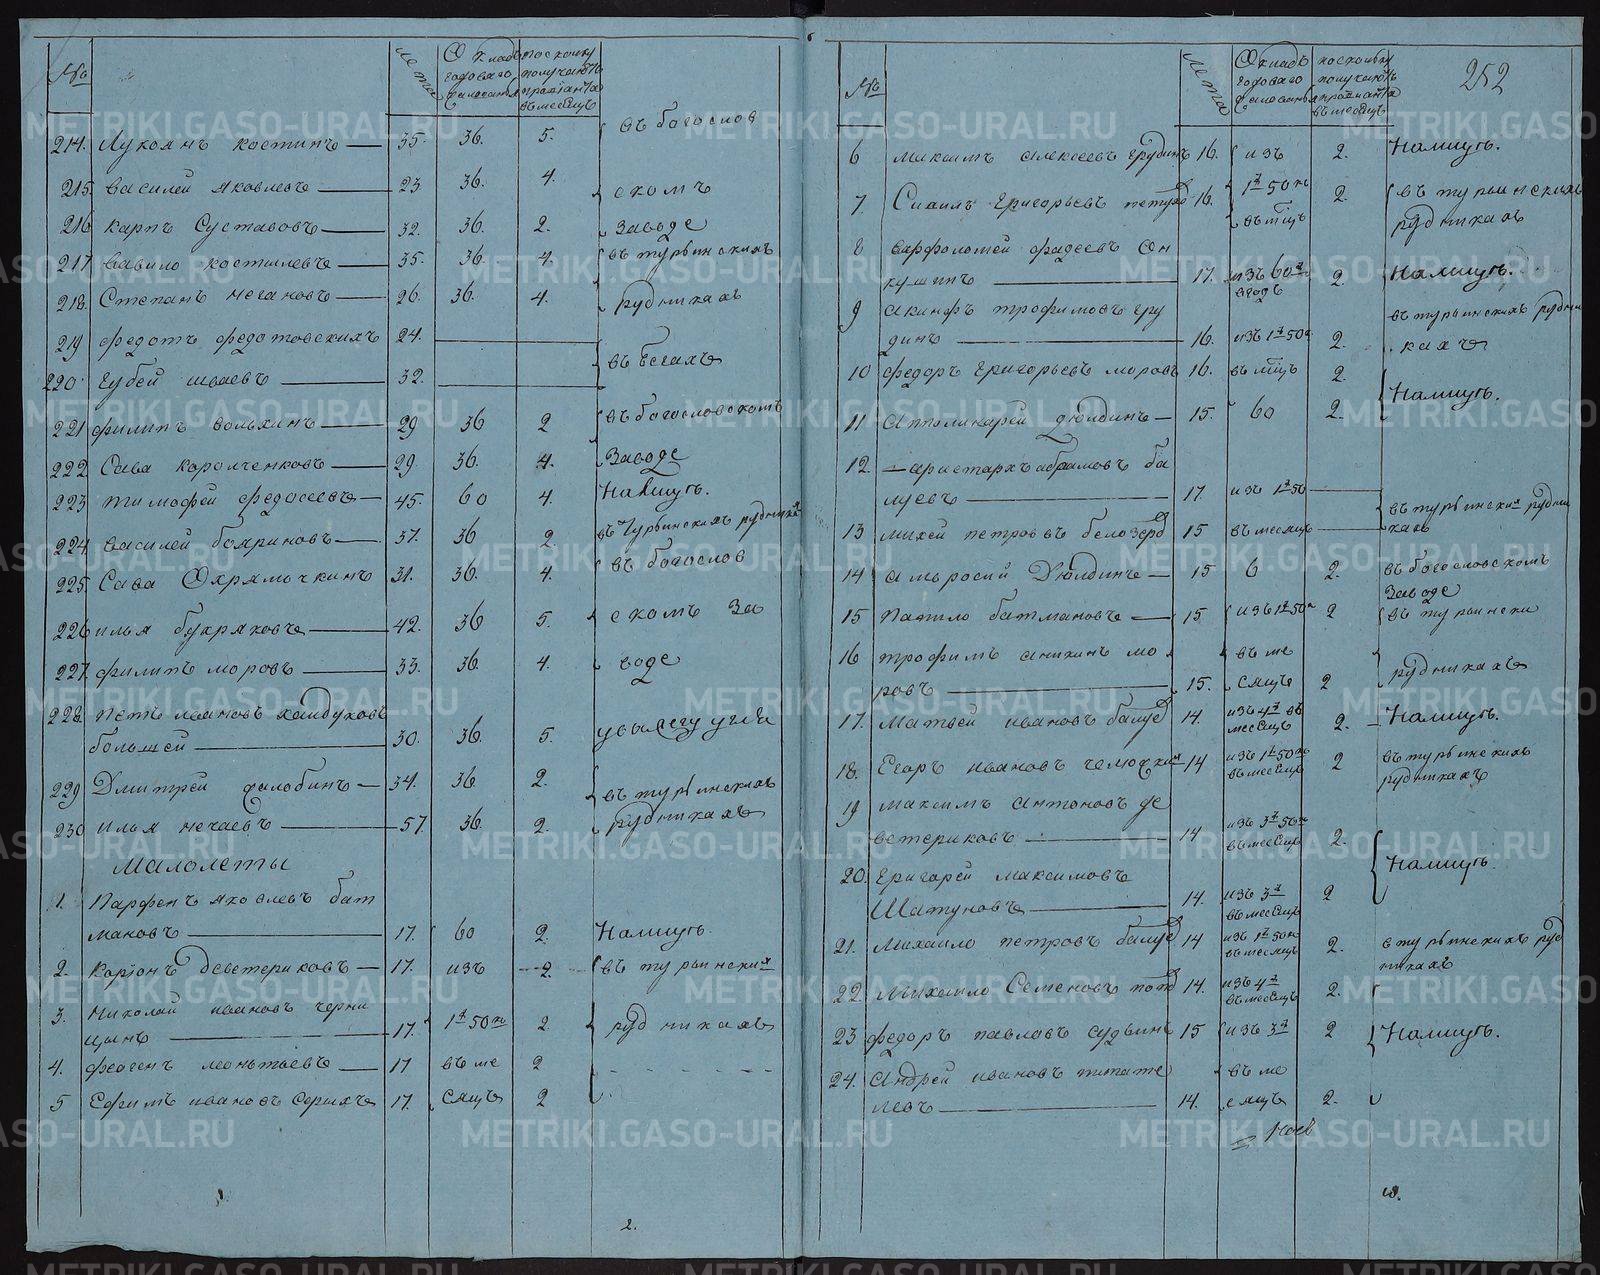 № Лета Окладъ годоваго жалованья поскольку получаютъ провiанта въ месяцъ
214. Лукоянъ костинъ 35. 36. 5. въ богослов
215. Василей Яковлевъ 23 36. 4. скомъ
216 карпъ Суставовъ 32. 36. 2. Заводе
217 вавило костылевъ 35. 36. 4. въ турьинскихъ
218. Степанъ Негановъ 26. 36. 4. рудникахъ
219 федотъ федотовскихъ 24.
220 32. въ бегахъ
221 филипъ вольхинъ 29 36 2 въ богословскомъ
222 Сава 29. 36. 4. Заводе
223 тимофей федосеевъ 45. 60 4. Налицуъ.
224 василей бояриновъ 37. 36 2 въ Турьинскихъ рудника
225. Сава 31. 36. 4. въ богослов
226 илья букряковъ 42. 36 5. скомъ За
227. филипъ моровъ 33. 36. 4. воде
228 Петръ ивановъ хайдуковъ
большей 30. 36. 5. увылегу угля
229 Дмитрей 34. 36 2. въ турьинскихъ
230 илья нечаевъ 57. 36. 2. рудникахъ
Малолеты
1. Парфенъ яковлевъ бат
мановъ 17. 60 2. Налицуъ.
2. Карiонъ деветериковъ 17. изъ 2. въ турьински
3. Николай ивановъ черни
цынъ 17. 1 50 к 2 рудникахъ
4. леонтьевъ 17 въ ме 2
5 Ефимъ ивановъ 17. сяцъ 2
2.
252
№ Лета Окладъ годоваго жалованья поскольку получаютъ провiанта въ месяцъ
6 максимъ алексеевъ грудинъ 16. изъ 2. Налицуъ.
7. григорьевъ петухо 16. 1 50 к въ мцъ 2 въ турьинскихъ рудникахъ
8 варфоломей фадеевъ он
кушинъ 17. изъ 60 в годъ 2 Налицуъ.
9 акинфъ трофимовъ гру въ турьинскихъ рудни
динъ 16. изъ 1 50 2. кахъ
10 федоръ григорьевъ моровъ 16. въ мцъ 2
11 Апполинарей дюлдинъ 15. 60 2. Налицуъ.
12. аристархъ абрамовъ ба
луевъ 17. изъ 1 50
въ турьински рудни
13 михей петровъ белозеро 15 въ месяцъ кахъ
14 амвросий Дюлдинъ 15 6 2. въ богословскомъ Заводе
15 батмановъ 15. изъ 1 50 2 въ турьински
16 трофимъ аникинъ мо въ ме
ровъ 15. сяцъ 2 рудникахъ
17. Матвей ивановъ балуе 14. изъ 4 въ месяцъ 2. Налицуъ.
18. Егоръ ивановъ 14 изъ 1 50 к въ месяцъ 2 въ турьинскихъ рудникахъ
19 максимъ антоновъ де
ветериковъ 14 изъ 3 50 к въ месяцъ 2.
20. Григорей максимовъ Налицуъ.
Шатуновъ 14. изъ 3 въ месяцъ 2
21. Михаило петровъ балуе 14 изъ 1 50 к въ месяцъ 2. в турьинскихъ руд никахъ
22. Михаило Семеновъ 14. изъ 4 въ месяцъ 2.
23 федоръ павловъ 15 изъ 3 2 Налицуъ.
24. Андрей ивановъ въ ме
левъ 14. сяцъ 2.
METRIKI.GASO-URAL.RU